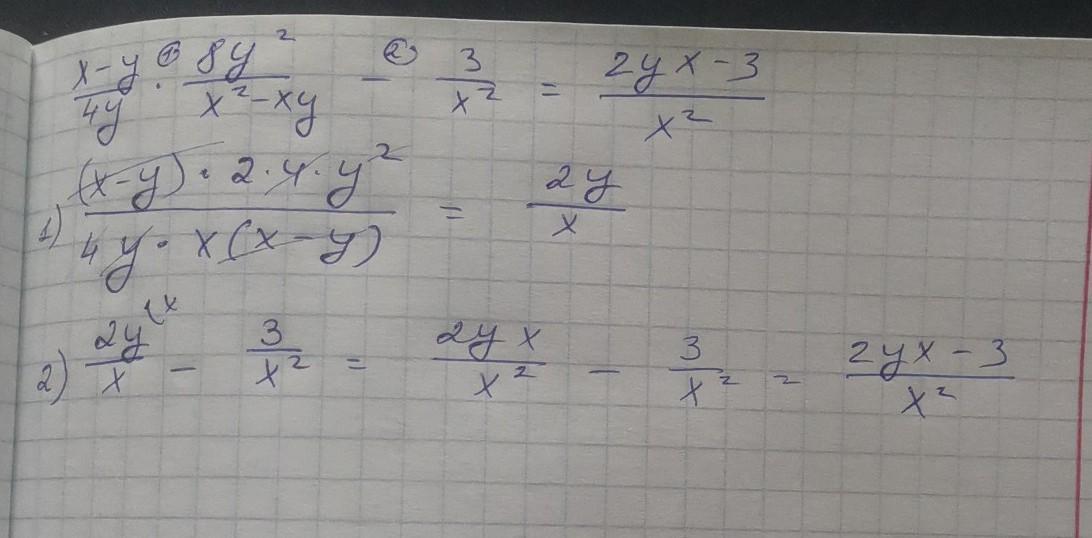 x-y/4y ·① 8y²/x²-xy -② 3/x² = 2yx-3/x²
1) (x-y)·2·4·y²/4y·x(x-y) = 2y/x
2) 2y(x/x - 3/x² = 2yx/x² - 3/x² = 2yx-3/x²